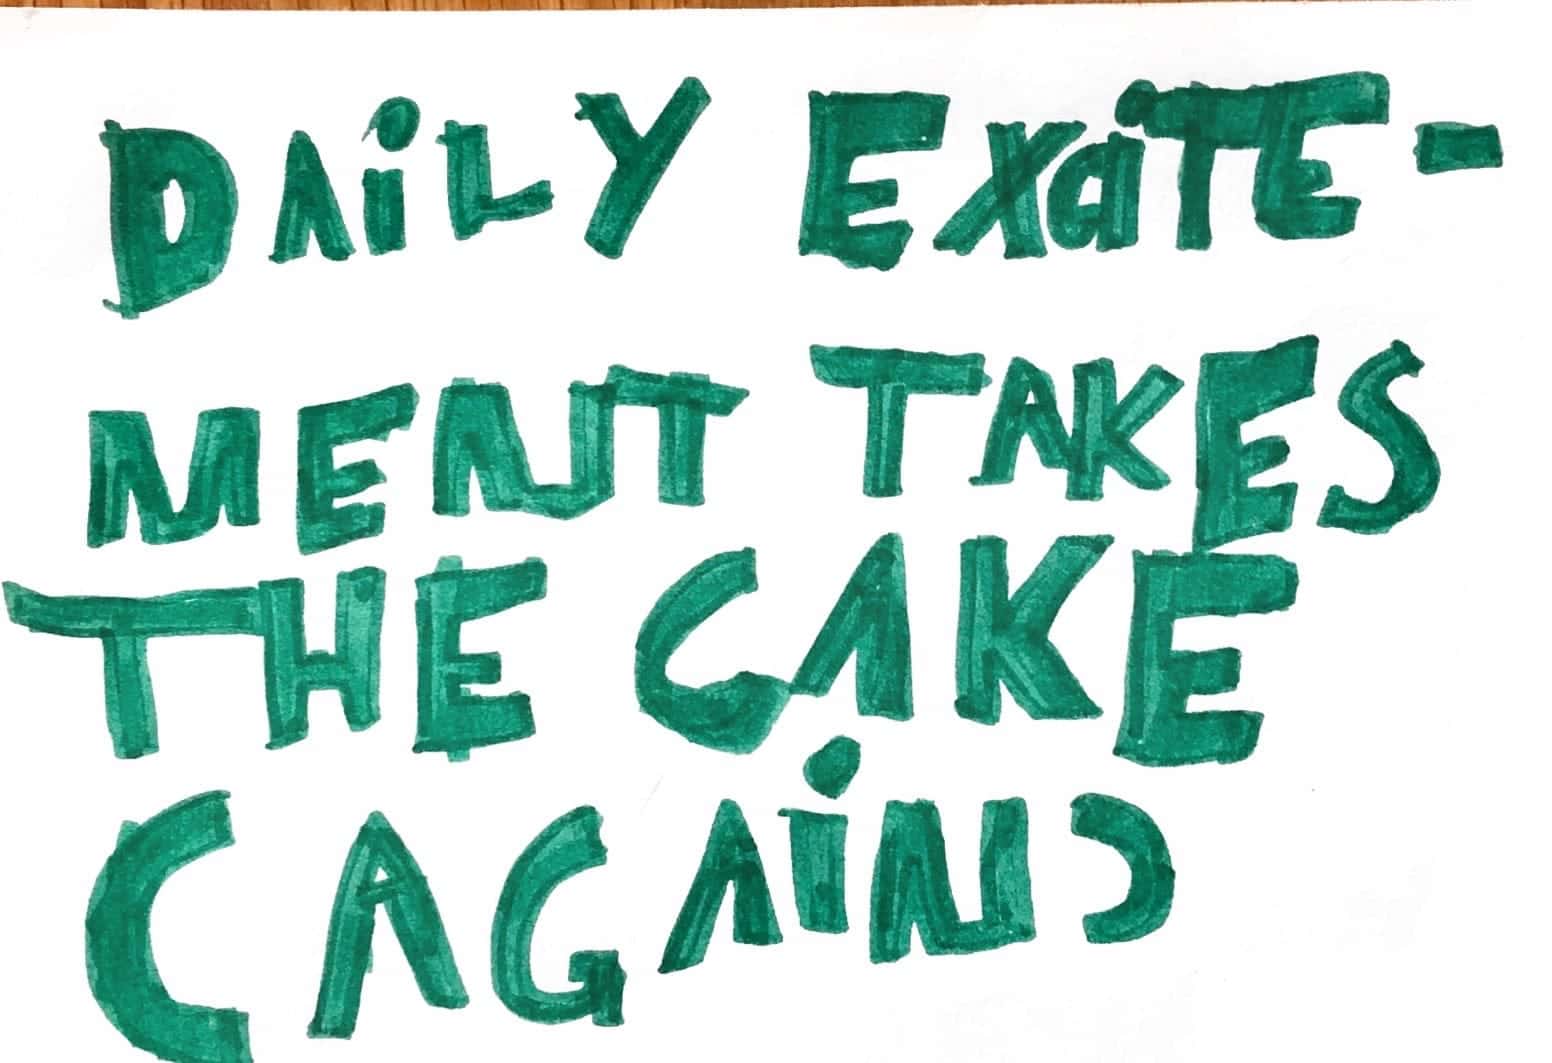 DAiLY EXaiTE-
MENT TAKES
THE CAKE
(AGAiN)